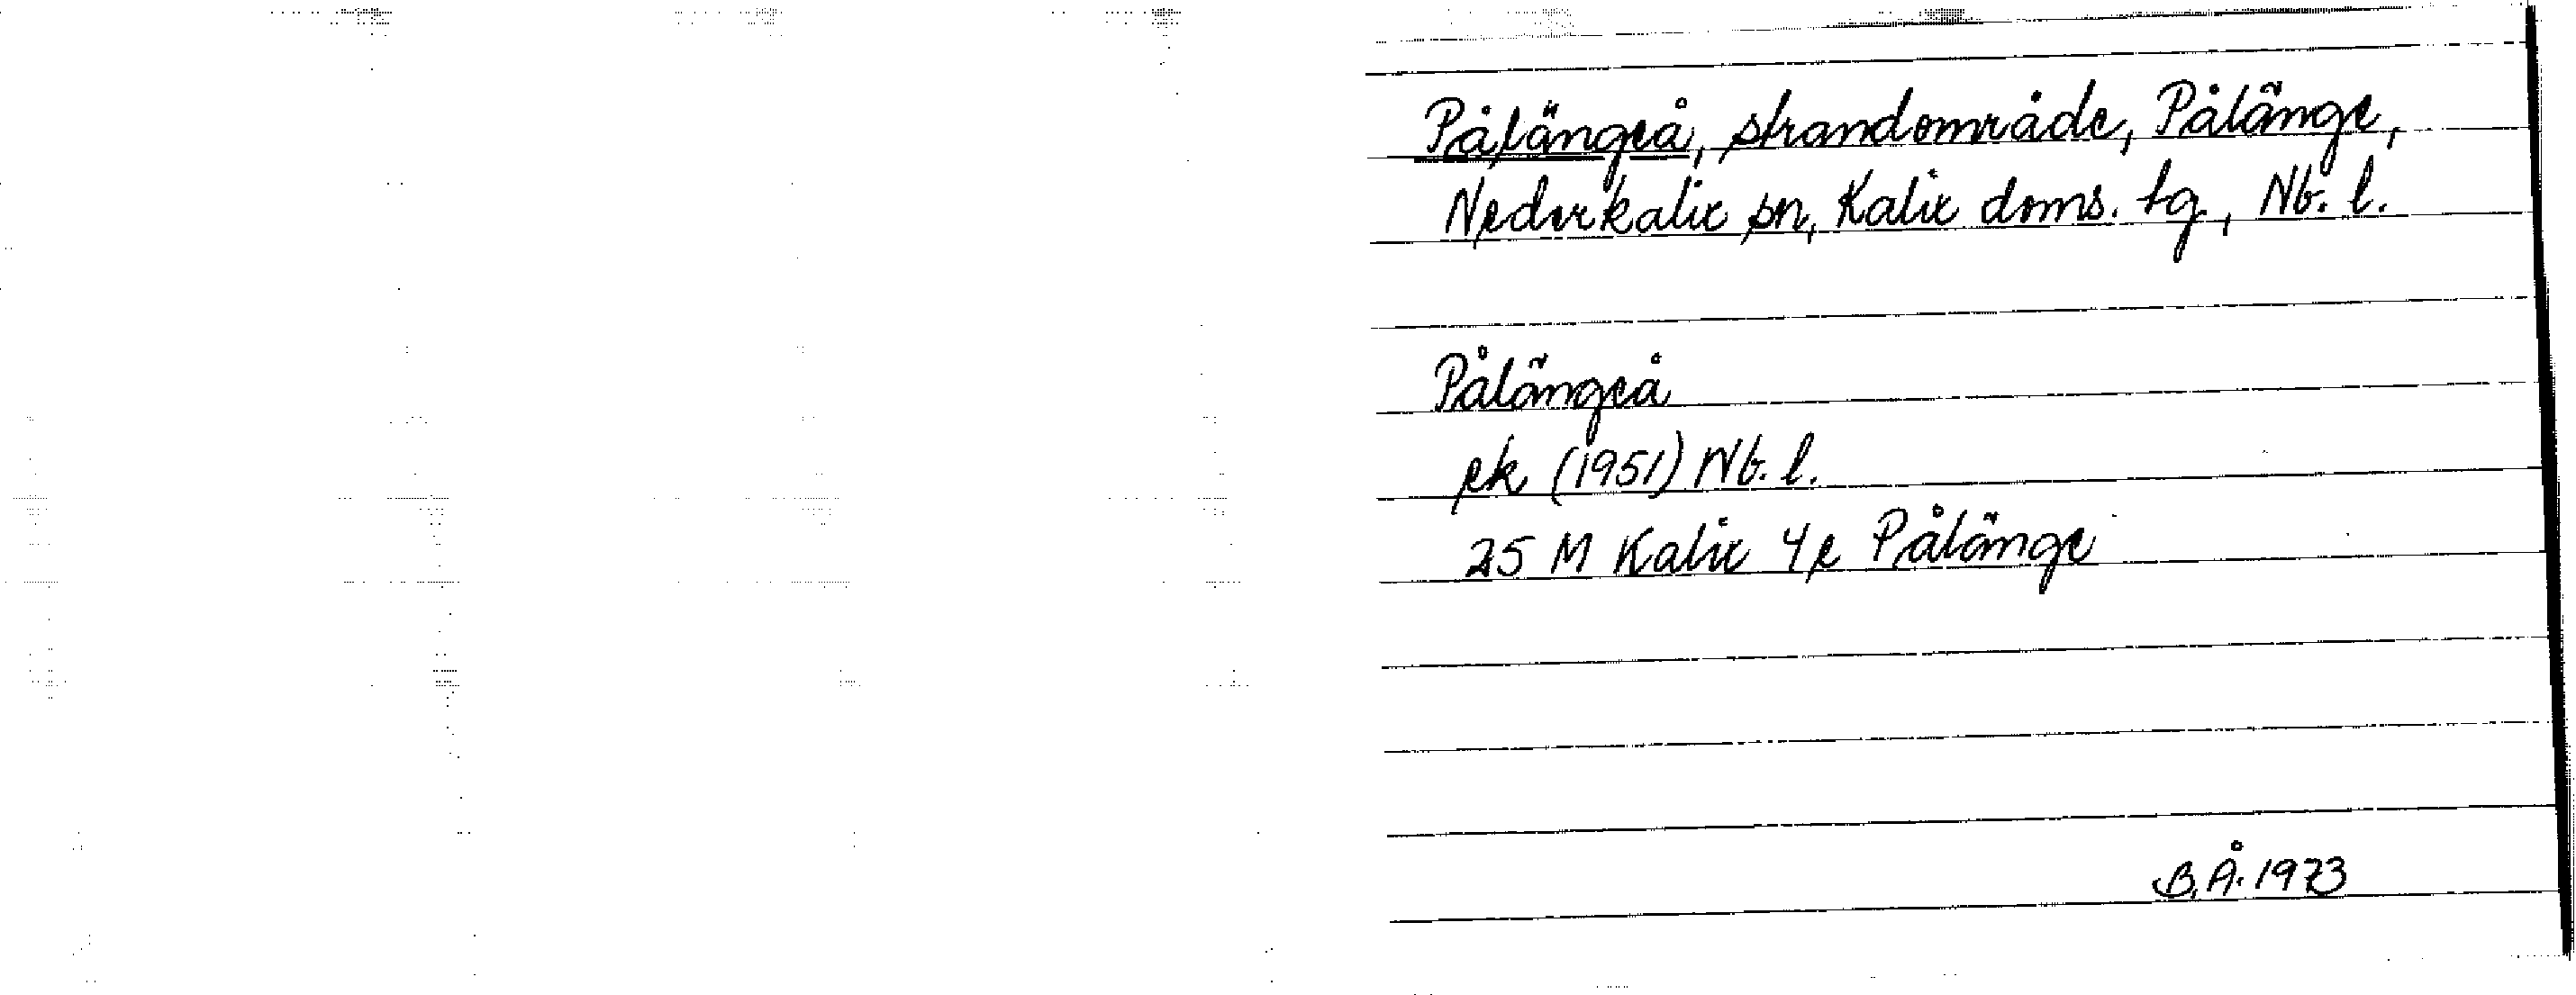 Pålängeå, strandområde, Pålänge,
Nederkalix sn, Kalix doms. tg, Nb. l.
Pålängeå
ek (1951) Nb. l.
25 M Kalix 4e Pålänge
B.Å. 1973